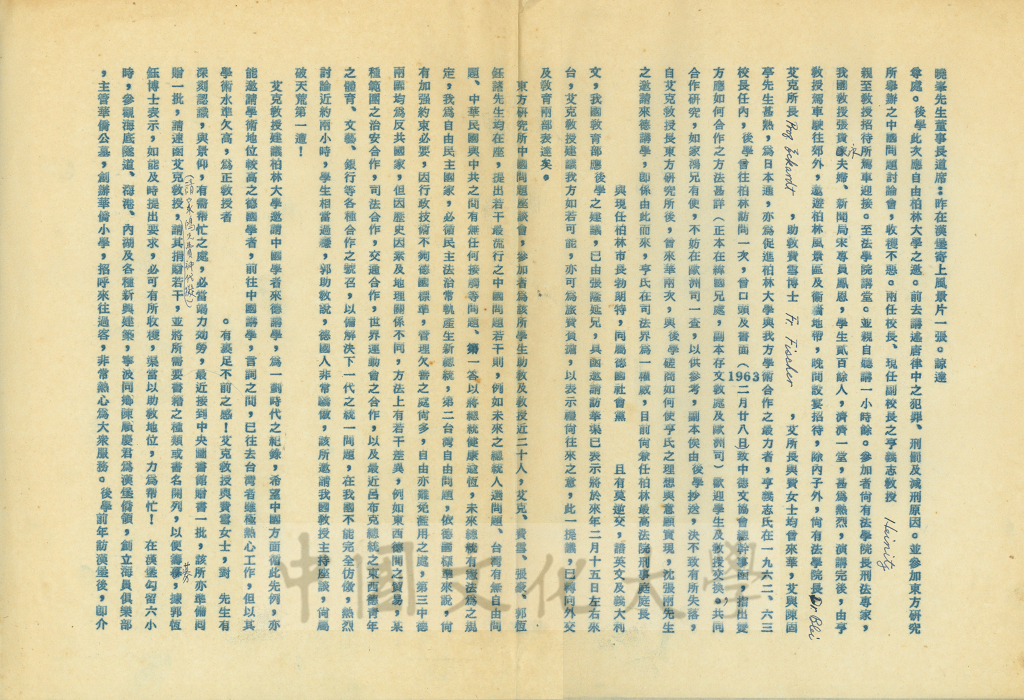 曉峯先生董事長道席：昨在漢堡寄上風景片一張。諒達
尊處。後學此次應自由柏林大學之邀。前去講述唐律中之犯罪、刑罰及減刑原因。並參加東方研究
所舉辦之中國問題討論會，收穫不惡。南任校長、現任副校長之亨義志教授 Heinitz
親至教授招待所駕車迎接。至法學院講堂。並親自聽講一小時餘。參加者尚有法學院長刑法專家，
我國教授張貴永夫婦、新聞局宋專員鳳恩，學生貳百餘人，濟濟一堂，甚為熱烈，演講完後，由亨
教授駕車駛往郊外，邀遊柏林風景區及衞者地帶，晚間設宴招待，除內子外，尚有法學院長 Dr Blei
艾克所長 Prof Eckardt ，助教費雪博士 Fr Fischer ，艾所長與費女士均曾來華，艾與陳固
亭先生甚熟，為日本通，亦為促進柏林大學與我方學術合作之最力者，亨義志氏在一九六二、六三
校長任內，後學曾往柏林訪問一次，曾口頭及書面（1963二月廿八且致中德文協會總幹事函，指出雙
方應如何合作之方法甚詳（正本在韓國兄處，副本存文教處及歐洲司）歡迎學生及教授交換。共同
研究，互相合作，如家鴻兄有便，不妨在歐洲司一查，以供參考，副本俟由後學抄送，決不致有所失落，
自艾克教授長東方研究所後，曾來華兩次，與後學磋商如何使亨氏之理想與意願實現，沈張兩先生
之邀請來德講學，卽係由此而來，亨氏在司法界為一權威，目前尚兼任柏林最高法院刑庭庭長
與現任柏林市長勃朗特，同屬德國社會黨 且有莫逆交，諳英文及義大利
文，我國教育部應後學之建議，已由張隆延兄，具函邀請訪華渠已表示將於來年二月十五日左右來
台，艾克教授建議我方如若可能，亦可為旅費負擔，以表示禮尚往來之意，此一提議，已轉向外交
及教育兩部表達矣。
東方研究所中國問題座談會，參加者為該所學生助教及教授近二十人，艾克、費雪、張豪、郭恆
鈺諸先生均在座，提出若干最流行之中國問題若干則，例如未來之總統人選問題、台灣有無自由問
題、中華民國與中共之間有無任何接觸等問題、第一答以蔣總統健康逾恆，未來總統有憲法為之規
定，我為自由民主國家，必循民主法治常軌產生新總統，第二台灣自由問題，依德國標準來說，尚
有加強約束必要，因行政技術不夠德國標準，管理欠善之處尚多，自由亦難免濫用之處，第三中德
兩國均為反共國家，但因歷史因素及地理關係不同，方法上有若干差異，例如東西德間之貿易，某
種範圍之治安合作，司法合作，交通合作，世界運動會之合作，以及最近呂布克總統之東西德青年
之體育、文藝、銀行等各種合作之號召，以備解決下一代之統一問題，在我國不能完全仿傚，熱烈
討論近約兩小時，學生相當過癮，郭助教說，德國人非常驕傲，該所邀請我國教授主持座談，尚屬
破天荒第一遭！
艾克教授建議柏林大學邀請中國學者來德講學，為一劃時代之紀錄，希望中國方面循此先例，亦
能邀請學術地位較高之德國學者，前往中國講學，言詞之間，已往去台灣者雖極熱心工作，但以其
學術水準欠高，為正教授者 。有裹足不前之感！艾克教授與費雪女士，對 先生有
深刻認識，與景仰，有需幫忙之處，必當竭力効勞，最近接到中央圖書館贈書一批，該所亦準備囘
贈一批，請速函艾克教授，請其捐贈若干，並將所需要書籍之種類或書名開列，以便籌募，據郭恆
（請家鴻兄費神代擬）
鈺博士表示，如能及時提出要求，必可有所收穫，渠當以助教地位，力為幫忙！ 在漢堡勾留六小
時，參觀海底隧道、海港、內湖及各種新興建築，寧波同鄉陳順慶君為漢堡僑領，創立海員俱樂部
，主管華僑公墓，創辦華僑小學，招呼來往過客，非常熱心為大衆服務。後學前年訪漢堡後，卽介